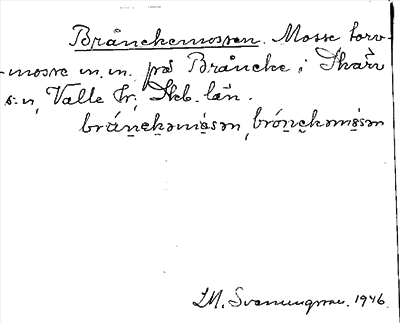 Brånekemossen. Mosse torv-
-mosse m.m. på Bråneke i Skärv
s:n, Valle hr, Skb. län.
brán̥ek̥əmósən, brón̥ek̥əmósən
I.M. Svenungsson. 1946.